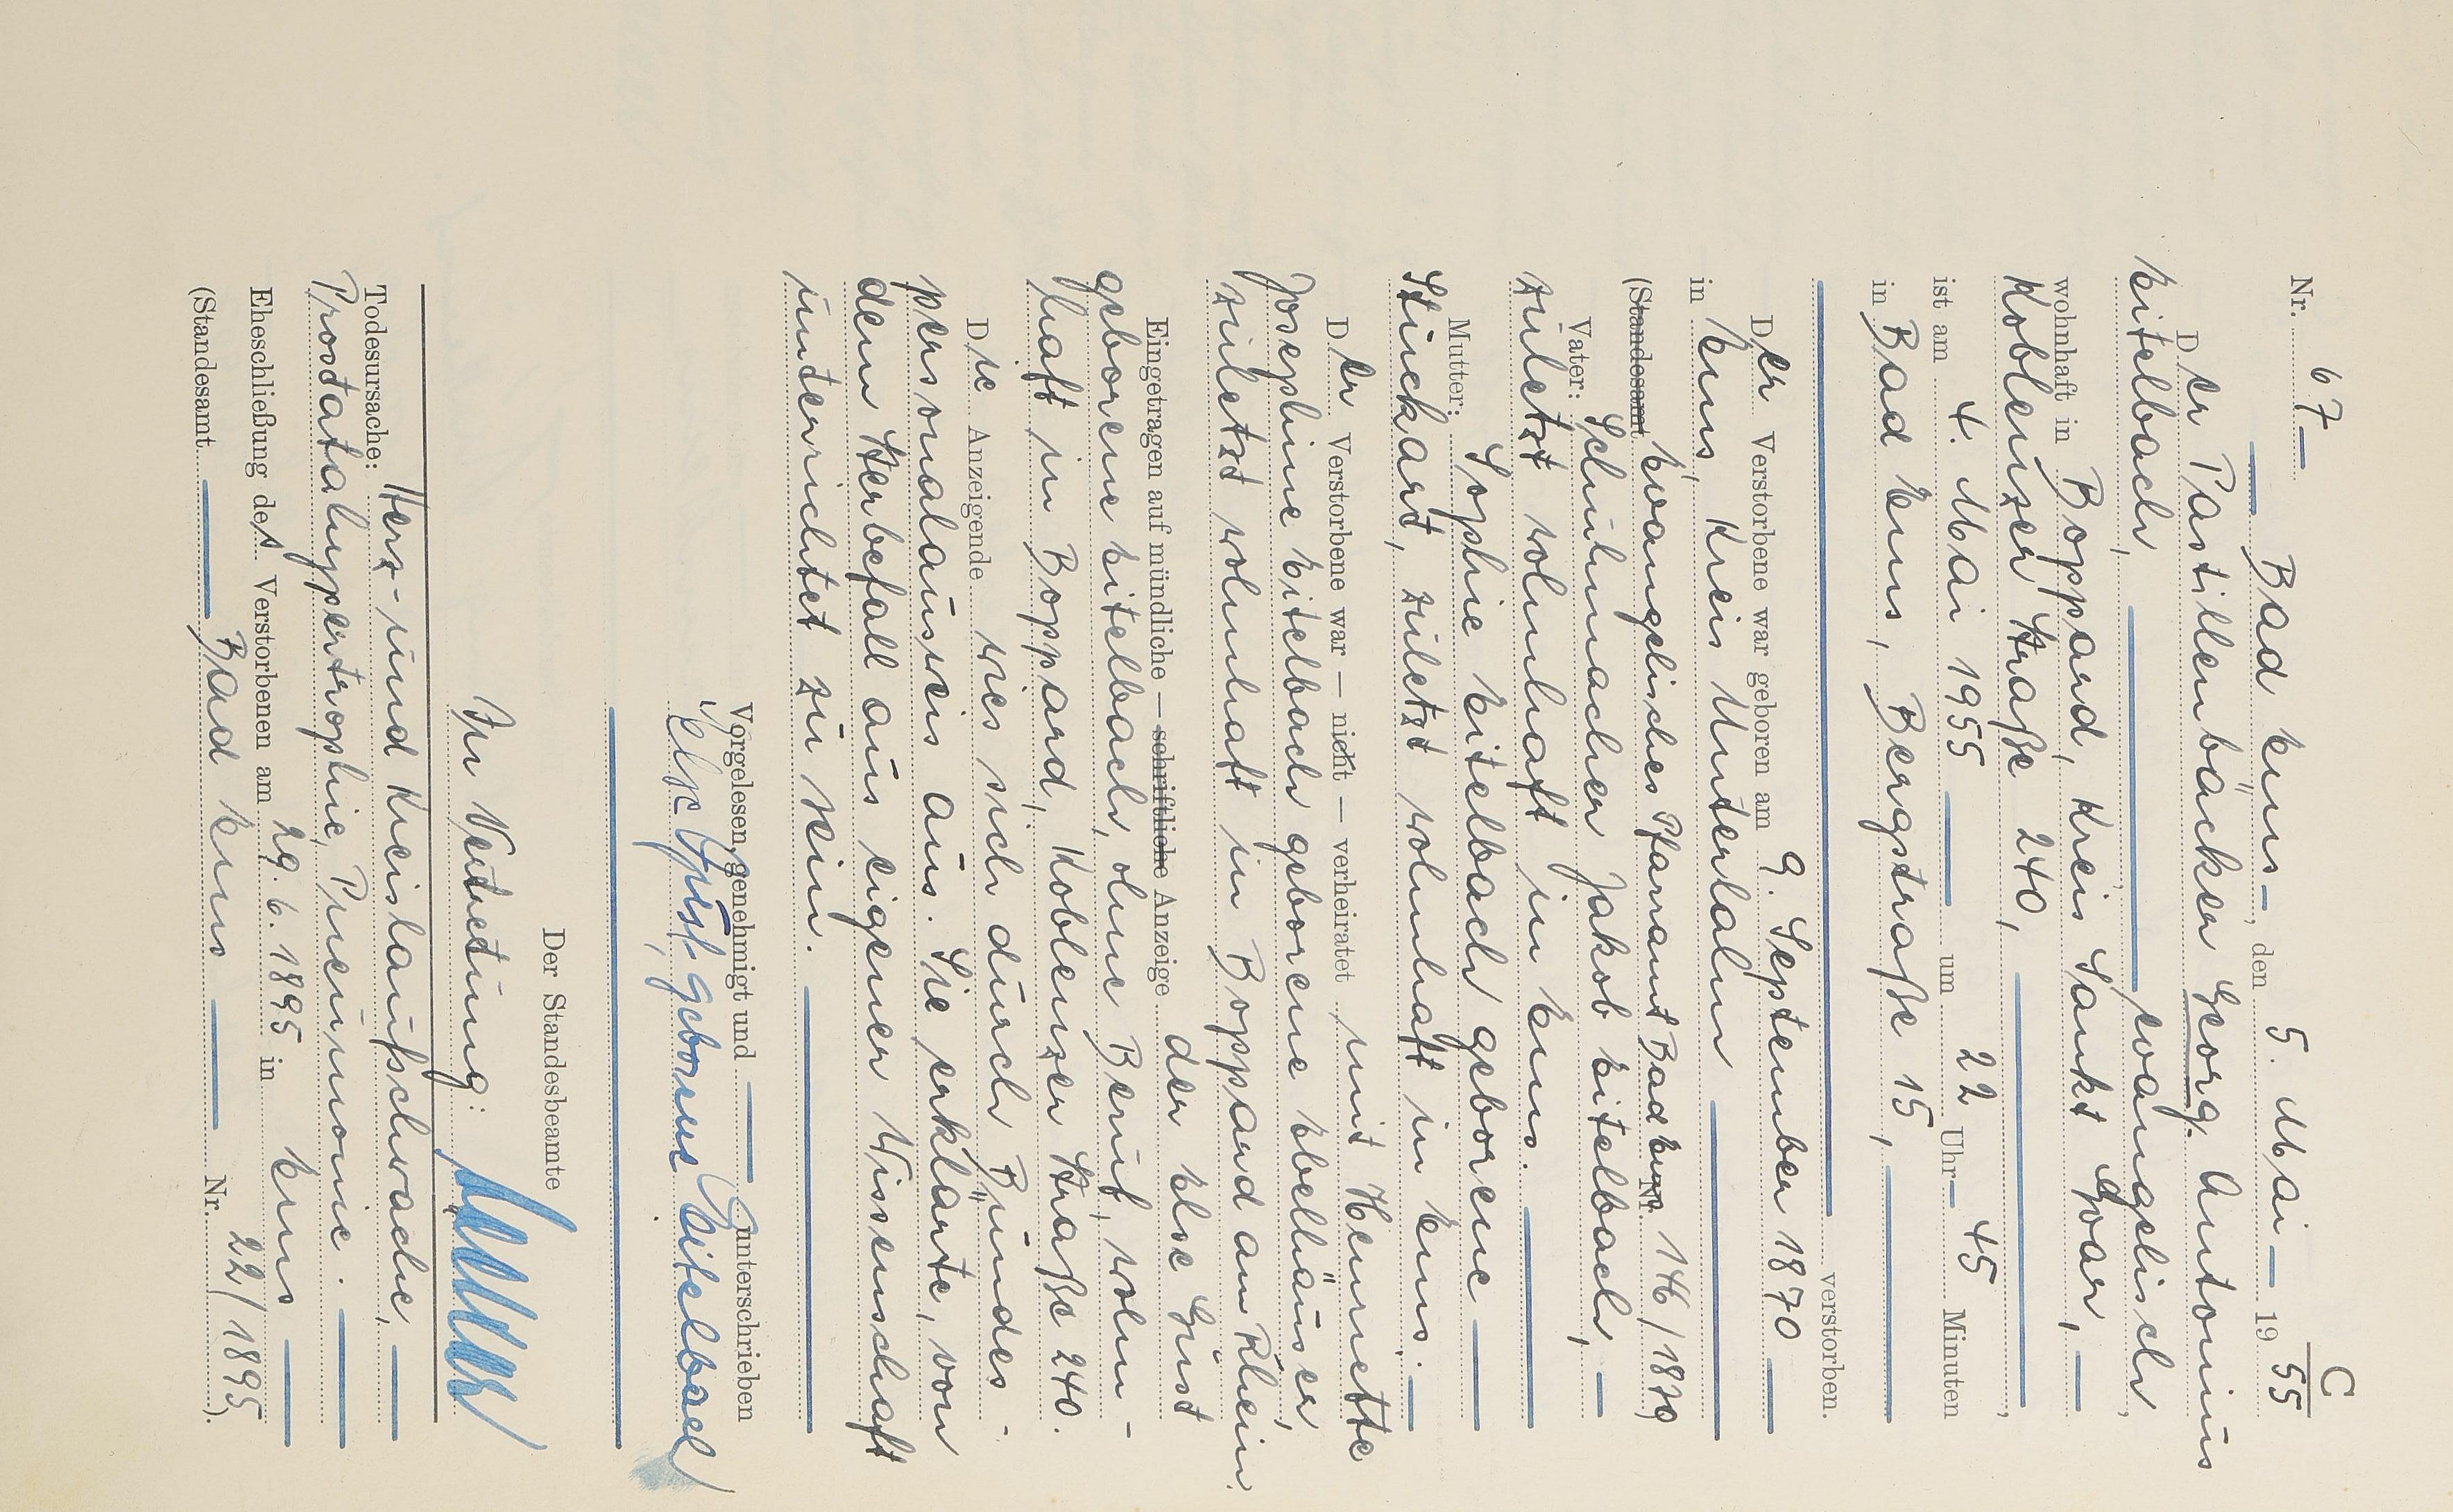 C
Nr. 67
Bad Ems, den 5. Mai 1955
Der Pastillenbäcker Georg Antonius
Eitelbach, evangelisch,
wohnhaft in Boppard, Kreis Sankt Goar,
Koblenzer Straße 240,
ist am 4. Mai 1955 um 22 Uhr 45 Minuten
in Bad Ems, Bergstraße 15,
verstorben.
Der Verstorbene war geboren am 9. September 1870
in Ems, Kreis Unterlahn
(Standesamt Evangelisches Pfarramt Bad Ems Nr. 146/1870)
Vater: Schuhmacher Jakob Eitelbach,
zuletzt wohnhaft in Ems.
Mutter: Sophie Eitelbach geborene
Stuckart, zuletzt wohnhaft in Ems.
Der Verstorbene war — nicht — verheiratet mit Henriette
Josephine Eitelbach geborene Ebelhäuser,
zuletzt wohnhaft in Boppard am Rhein.
Eingetragen auf mündliche — schriftliche Anzeige der Else Grust
geborene Eitelbach, ohne Beruf, wohn-
haft in Boppard, Koblenzer Straße 240.
Die Anzeigende wies sich durch Bundes-
personalausweis aus. Sie erklärte, von
dem Sterbefall aus eigener Wissenschaft
unterrichtet zu sein.
Vorgelesen, genehmigt und unterschrieben
Else geborene Eitelbach
Der Standesbeamte
In Vertretung:
Todesursache: Herz- und Kreislaufschwäche,
Prostatahypertrophie, Pneumonie.
Eheschließung des Verstorbenen am 29. 6. 1895 in Ems
(Standesamt Bad Ems Nr. 22/1895).